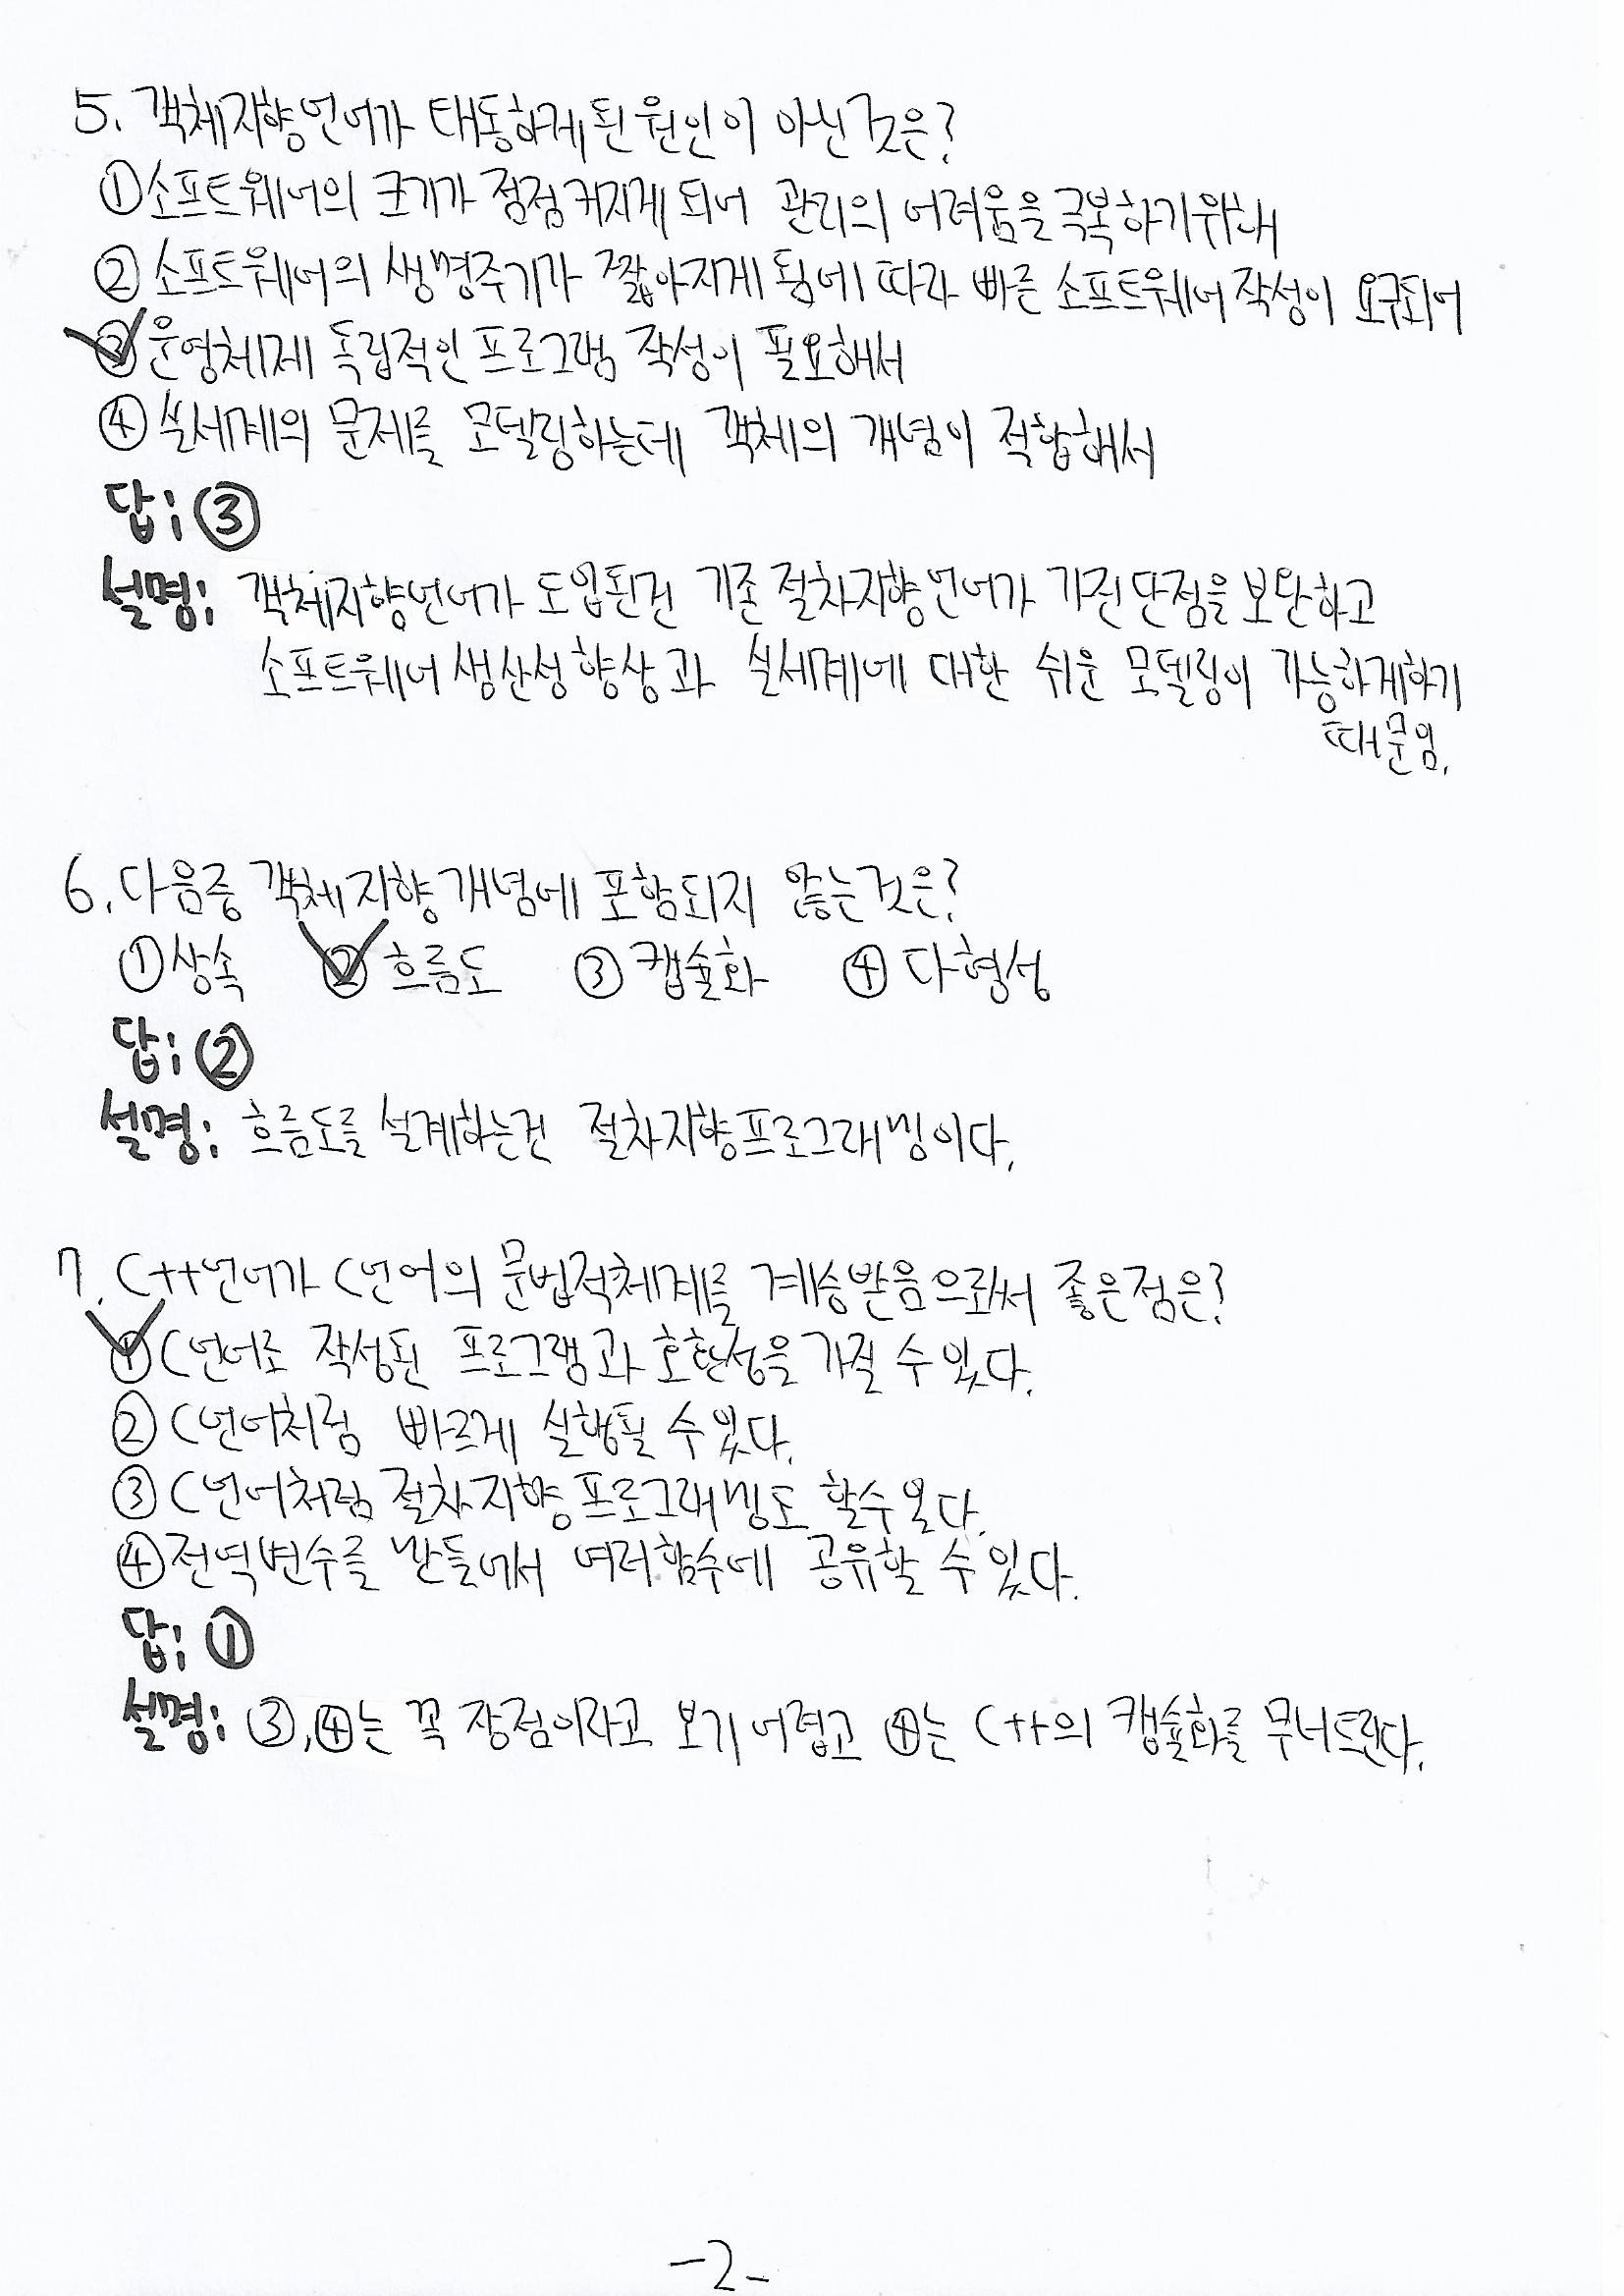 5. 객체지향언어가 태동하게된 원인이 아닌것은?
① 소프트웨어의 크기가 점점 커지게 되어 관리의 어려움을 극복하기위해
② 소프트웨어의 생명주기가 짧아지게 됨에 따라 빠른 소프트웨어 작성이 요구되어
③ 운영체제 독립적인 프로그램 작성이 필요해서
④ 실세계의 문제를 모델링하는데 객체의 개념이 적합해서
답: ③
설명: 객체지향언어가 도입된건 기존 절차지향언어가 가진단점을 보완하고
소프트웨어 생산성향상과 실세계에 대한 쉬운 모델링이 가능하게하기
때문임.
6. 다음중 객체지향개념에 포함되지 않는것은?
① 상속 ② 흐름도 ③ 캡슐화 ④ 다형성
답: ②
설명: 흐름도를 설계하는건 절차지향프로그래밍이다.
7. C++언어가 C언어의 문법적체계를 계승받음으로써 좋은점은?
① C언어로 작성된 프로그램과 호환성을 가질 수 있다.
② C언어처럼 빠르게 실행될 수 있다.
③ C언어처럼 절차지향프로그래밍도 할수있다.
④ 전역변수를 만들어서 여러함수에 공유할 수 있다.
답: ①
설명: ③,④는 꼭 장점이라고 보기 어렵고 ④는 C++의 캡슐화를 무너트린다.
-2-